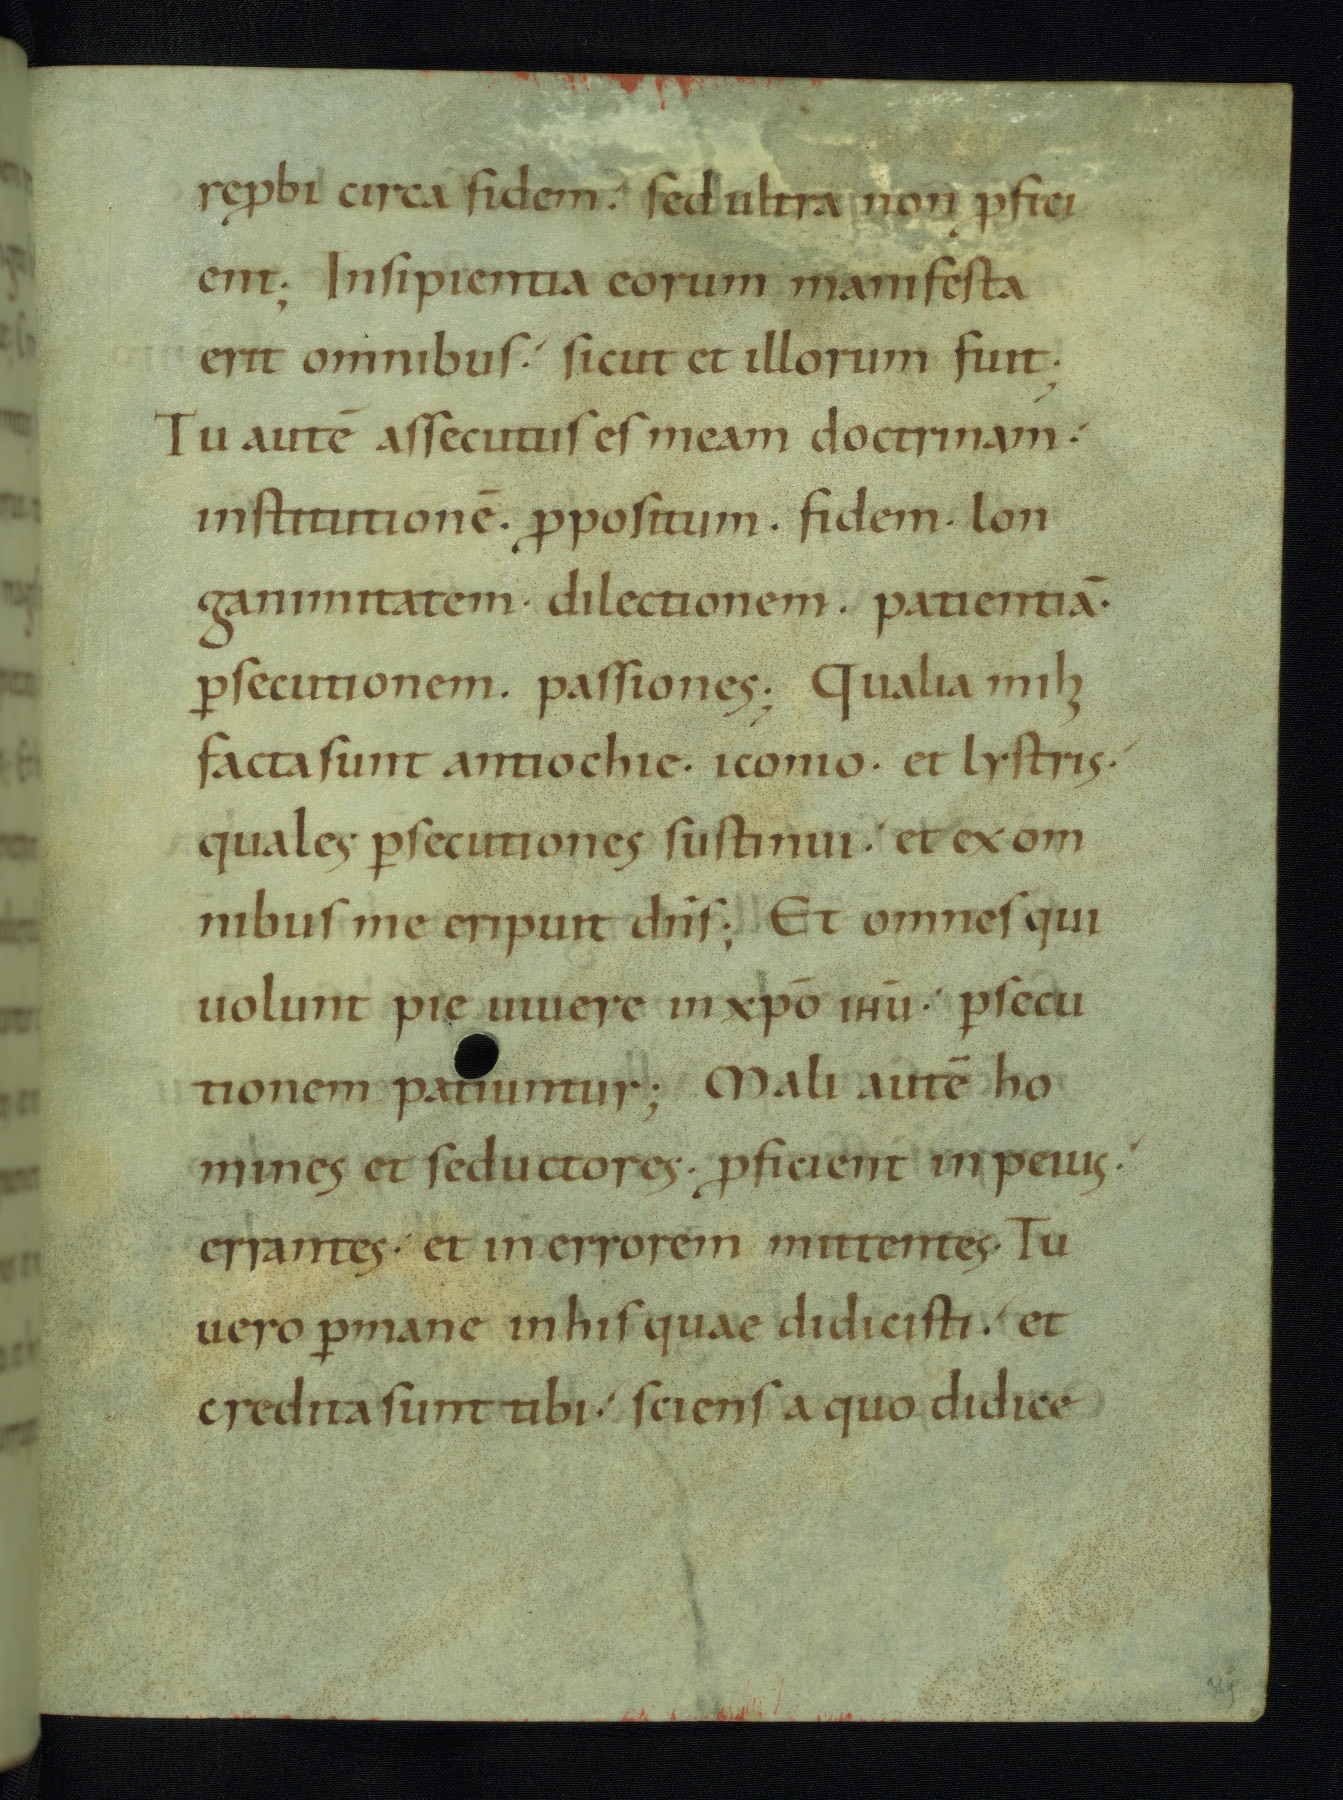 reꝓbi circa fidem. sed ultra non ꝓfici
ent; Insipientia eorum manifesta
erit omnibus. sicut et illorum fuit;
Tu autē assecutus es meam doctrinam.
institutionē. ꝓpositum. fidem. lon
ganimitatem. dilectionem. patientiā.
ꝑsecutionem. passiones; Qualia mihꝫ
facta sunt antiochie. iconio. et lystris.
quales ꝑsecutiones sustinui. et ex om
nibus me eripuit dn̄s; Et omnes qui
uolunt pie uiuere in xpō ihū. ꝑsecu
tionem patiuntur; Mali autē ho
mines et seductores. ꝓficient in peius.
errantes. et in errorem mittentes. Tu
uero ꝑmane in his quae didicisti. et
credita sunt tibi. sciens a quo didice